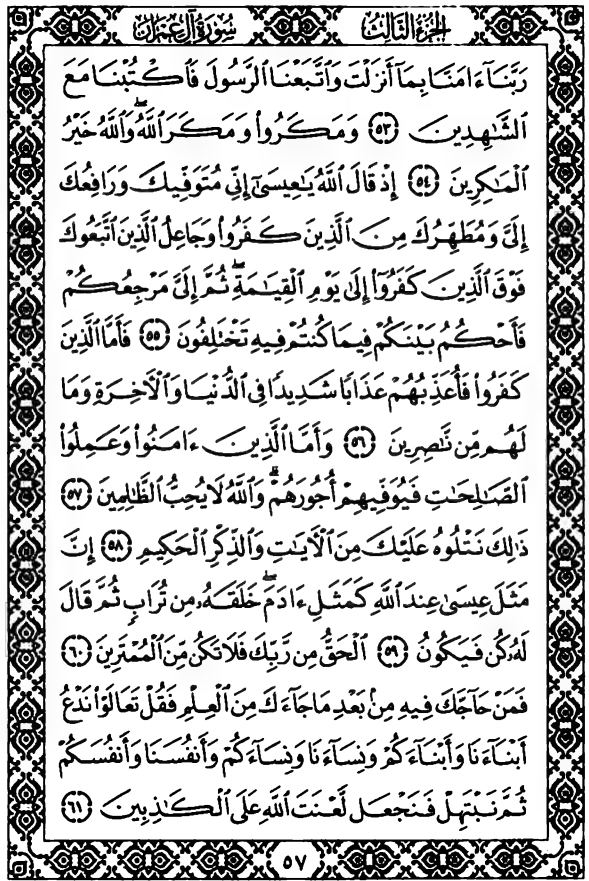 سُورَةُ آلِ عِمْرَانَ الجُزْءُ الثَّالِثُ
رَبَّنَآ ءَامَنَّا بِمَآ أَنزَلْتَ وَٱتَّبَعْنَا ٱلرَّسُولَ فَٱكْتُبْنَا مَعَ
ٱلشَّٰهِدِينَ ٥٣ وَمَكَرُوا۟ وَمَكَرَ ٱللَّهُۖ وَٱللَّهُ خَيْرُ
ٱلْمَٰكِرِينَ ٥٤ إِذْ قَالَ ٱللَّهُ يَٰعِيسَىٰٓ إِنِّى مُتَوَفِّيكَ وَرَافِعُكَ
إِلَىَّ وَمُطَهِّرُكَ مِنَ ٱلَّذِينَ كَفَرُوا۟ وَجَاعِلُ ٱلَّذِينَ ٱتَّبَعُوكَ
فَوْقَ ٱلَّذِينَ كَفَرُوٓا۟ إِلَىٰ يَوْمِ ٱلْقِيَٰمَةِۖ ثُمَّ إِلَىَّ مَرْجِعُكُمْ
فَأَحْكُمُ بَيْنَكُمْ فِيمَا كُنتُمْ فِيهِ تَخْتَلِفُونَ ٥٥ فَأَمَّا ٱلَّذِينَ
كَفَرُوا۟ فَأُعَذِّبُهُمْ عَذَابًا شَدِيدًا فِى ٱلدُّنْيَا وَٱلْءَاخِرَةِ وَمَا
لَهُم مِّن نَّٰصِرِينَ ٥٦ وَأَمَّا ٱلَّذِينَ ءَامَنُوا۟ وَعَمِلُوا۟
ٱلصَّٰلِحَٰتِ فَيُوَفِّيهِمْ أُجُورَهُمْۗ وَٱللَّهُ لَا يُحِبُّ ٱلظَّٰلِمِينَ ٥٧
ذَٰلِكَ نَتْلُوهُ عَلَيْكَ مِنَ ٱلْءَايَٰتِ وَٱلذِّكْرِ ٱلْحَكِيمِ ٥٨ إِنَّ
مَثَلَ عِيسَىٰ عِندَ ٱللَّهِ كَمَثَلِ ءَادَمَۖ خَلَقَهُۥ مِن تُرَابٍ ثُمَّ قَالَ
لَهُۥ كُن فَيَكُونُ ٥٩ ٱلْحَقُّ مِن رَّبِّكَ فَلَا تَكُن مِّنَ ٱلْمُمْتَرِينَ ٦٠
فَمَنْ حَآجَّكَ فِيهِ مِنۢ بَعْدِ مَا جَآءَكَ مِنَ ٱلْعِلْمِ فَقُلْ تَعَالَوْا۟ نَدْعُ
أَبْنَآءَنَا وَأَبْنَآءَكُمْ وَنِسَآءَنَا وَنِسَآءَكُمْ وَأَنفُسَنَا وَأَنفُسَكُمْ
ثُمَّ نَبْتَهِلْ فَنَجْعَل لَّعْنَتَ ٱللَّهِ عَلَى ٱلْكَٰذِبِينَ ٦١
٥٧